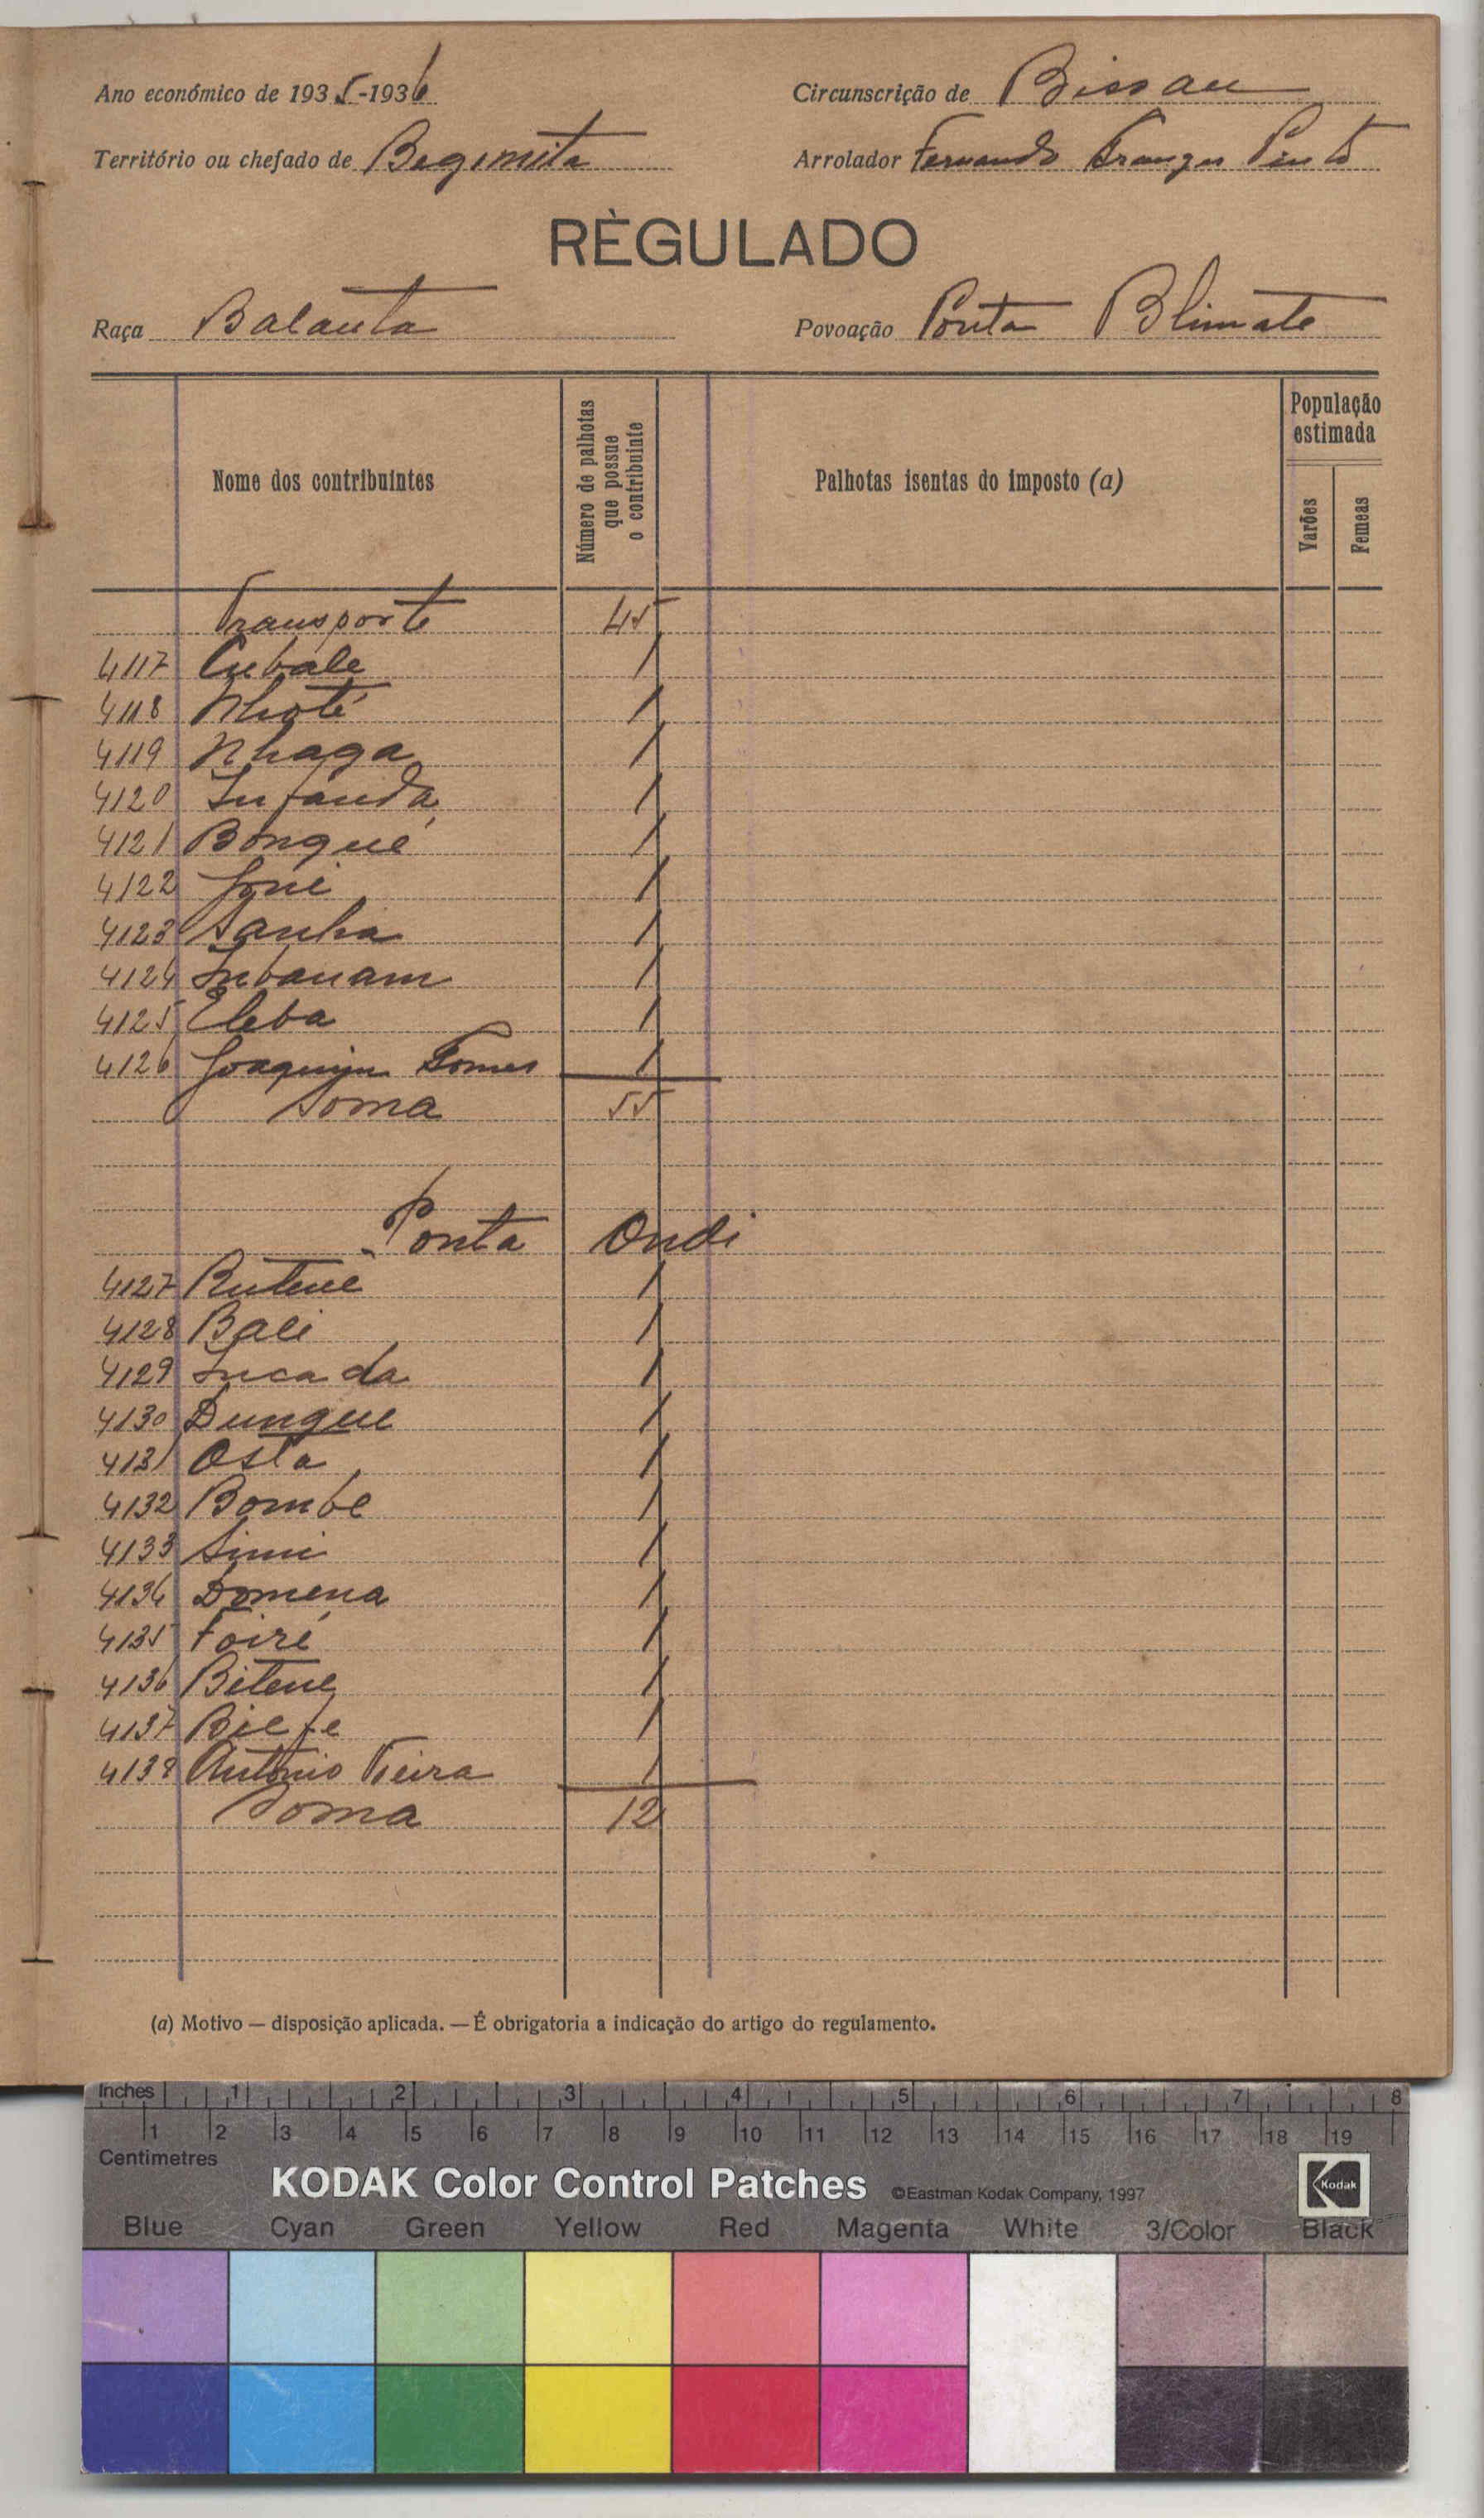 Ano económico de 1935-1936 Circunscrição de Bissau
Território ou chefado de Begemita Arrolador Fernando Pinto
RÈGULADO
Raça Balanta Povoação Ponta Blimate
Nome dos contribuintes
Número de palhotas
que possue
o contribuinte
Palhotas isentas do imposto (a)
População
estimada
Varões
Femeas
Transporte 45
4117 Cubale 1
4118 Nhoté 1
4119 Nhaga 1
4120 Infanda 1
4121 Bongué 1
4122 Joni 1
4123 Sanha 1
4124 Inbanam 1
4125 Cleba 1
4126 Joaquim Gomes 1
Soma 55
Ponta Ondi
4127 Butene 1
4128 Bali 1
4129 Incada 1
4130 Dungue 1
4131 Osta 1
4132 Bombe 1
4133 Simi 1
4134 Domena 1
4135 Foiré 1
4136 Bitene 1
4137 Biefe 1
4138 António Vieira 1
Soma 12
(a) Motivo — disposição aplicada. — É obrigatoria a indicação do artigo do regulamento.
Inches 1 2 3 4 5 6 7 8
1 2 3 4 5 6 7 8 9 10 11 12 13 14 15 16 17 18 19
Centimetres
KODAK Color Control Patches ©Eastman Kodak Company, 1997 Kodak
Blue Cyan Green Yellow Red Magenta White 3/Color Black